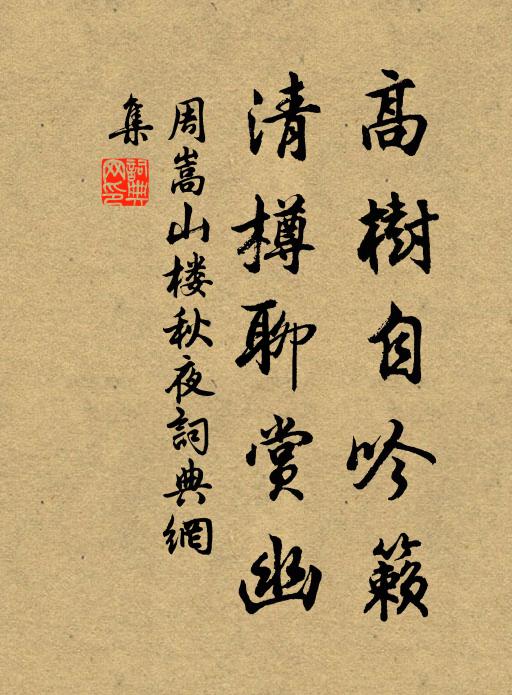 高樹自吟籟
清樽聊賞幽
周嵩山楼秋夜詞典網
集
詞典
网印